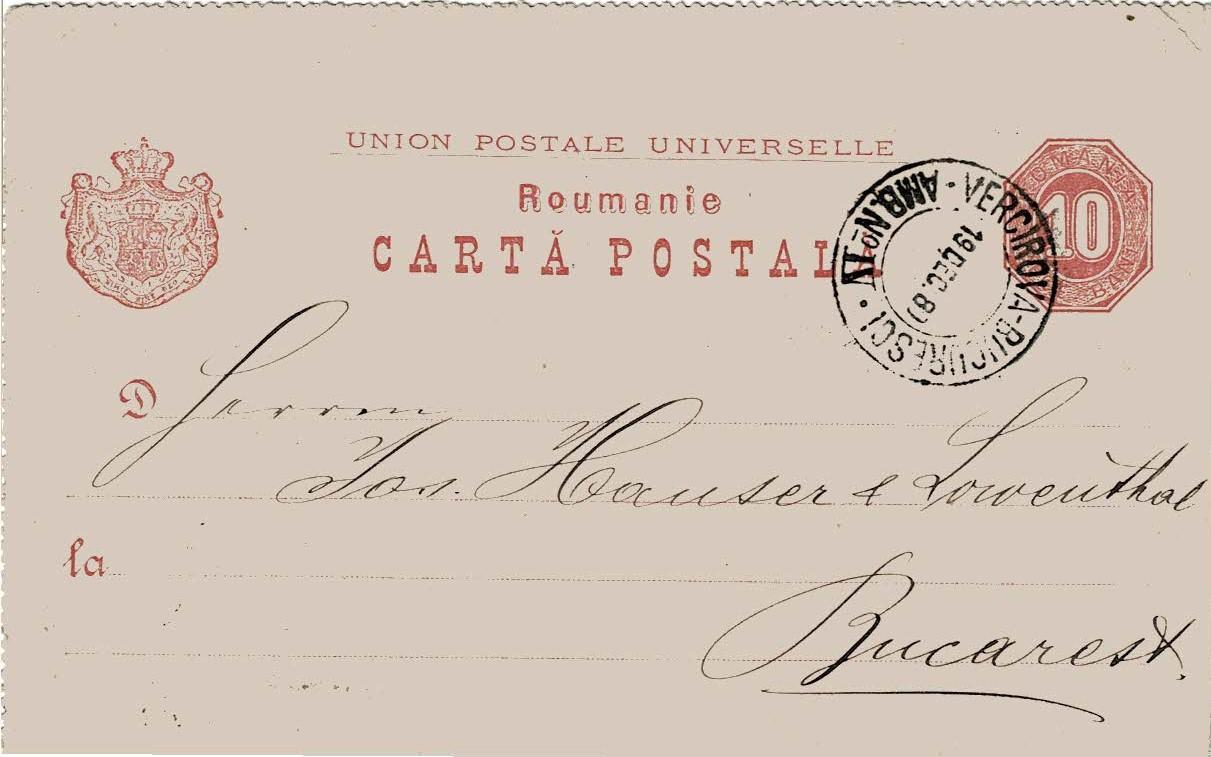 UNION POSTALE UNIVERSELLE
Roumanie
CARTĂ POSTALĂ
ROMANIA
10
BANI
VERCIROVA-BUCURESCI
AMB. No IV
19 DEC. 8
NIHIL SINE DEO
D Herrn
Jos. Hauser & Lowenthal
la
Bucarest.